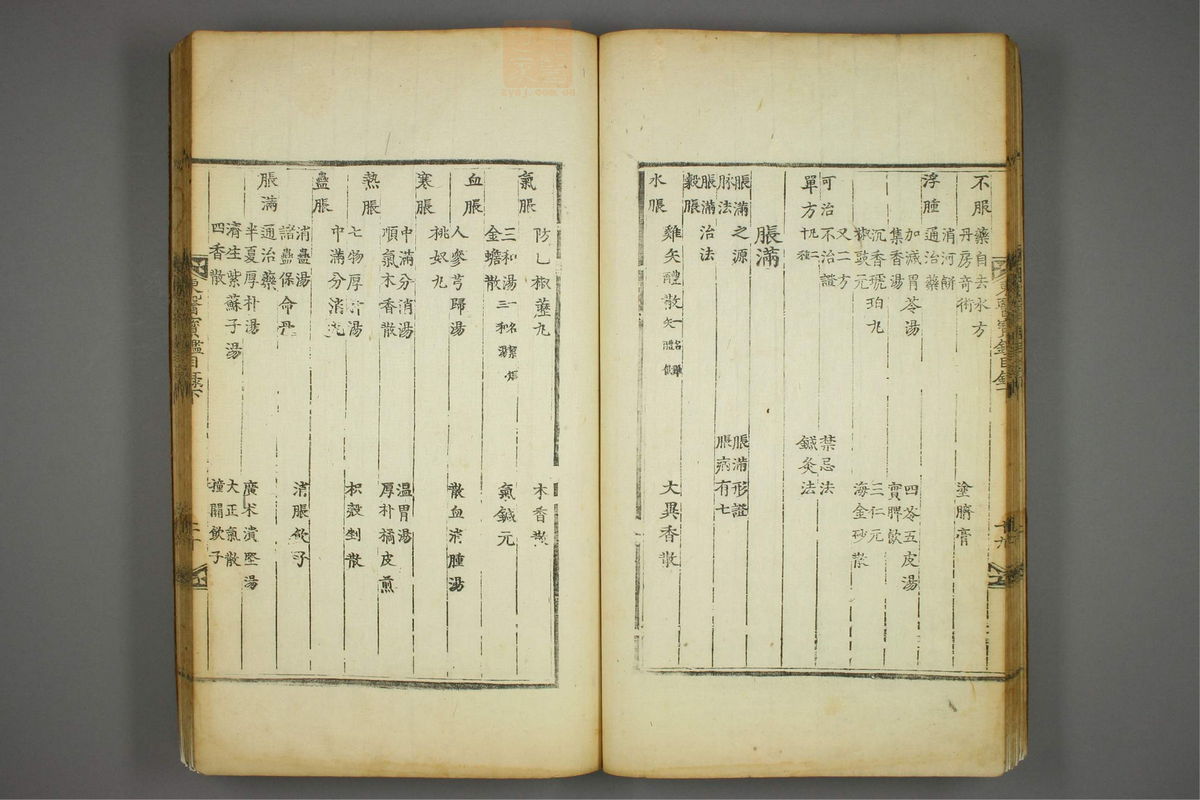 不服藥自去水方
丹房奇術
塗臍膏
消河餠
浮腫通治藥
加減胃苓湯
四苓五皮湯
集香湯
實脾飮
沉香琥珀丸
三仁元
椒
元
海金砂散
又二方
可治不治證
禁忌法
單方
鍼灸法
脹滿
脹滿之源
脹滿形證
脉法
脹病有七
脹滿治法
穀脹
雞矢醴散
大異香散
水脹
東醫寶鑑目錄下
氣脹
防己椒藶丸
木香散
三和湯
金蟾散
氣鍼元
血脹
人參芎歸湯
散血消腫湯
桃奴丸
寒脹
中滿分消湯
溫胃湯
順氣木香散
厚朴橘皮煎
熱脹
七物厚朴湯
枳殼剉散
中滿分消丸
蠱脹
消蠱湯
消脹飮子
諸蠱保命丹
脹滿通治藥
半夏厚朴湯
廣朮潰堅湯
濟生紫蘇子湯
大正氣散
四香散
撞關飮子
東醫寶鑑目錄下
二十